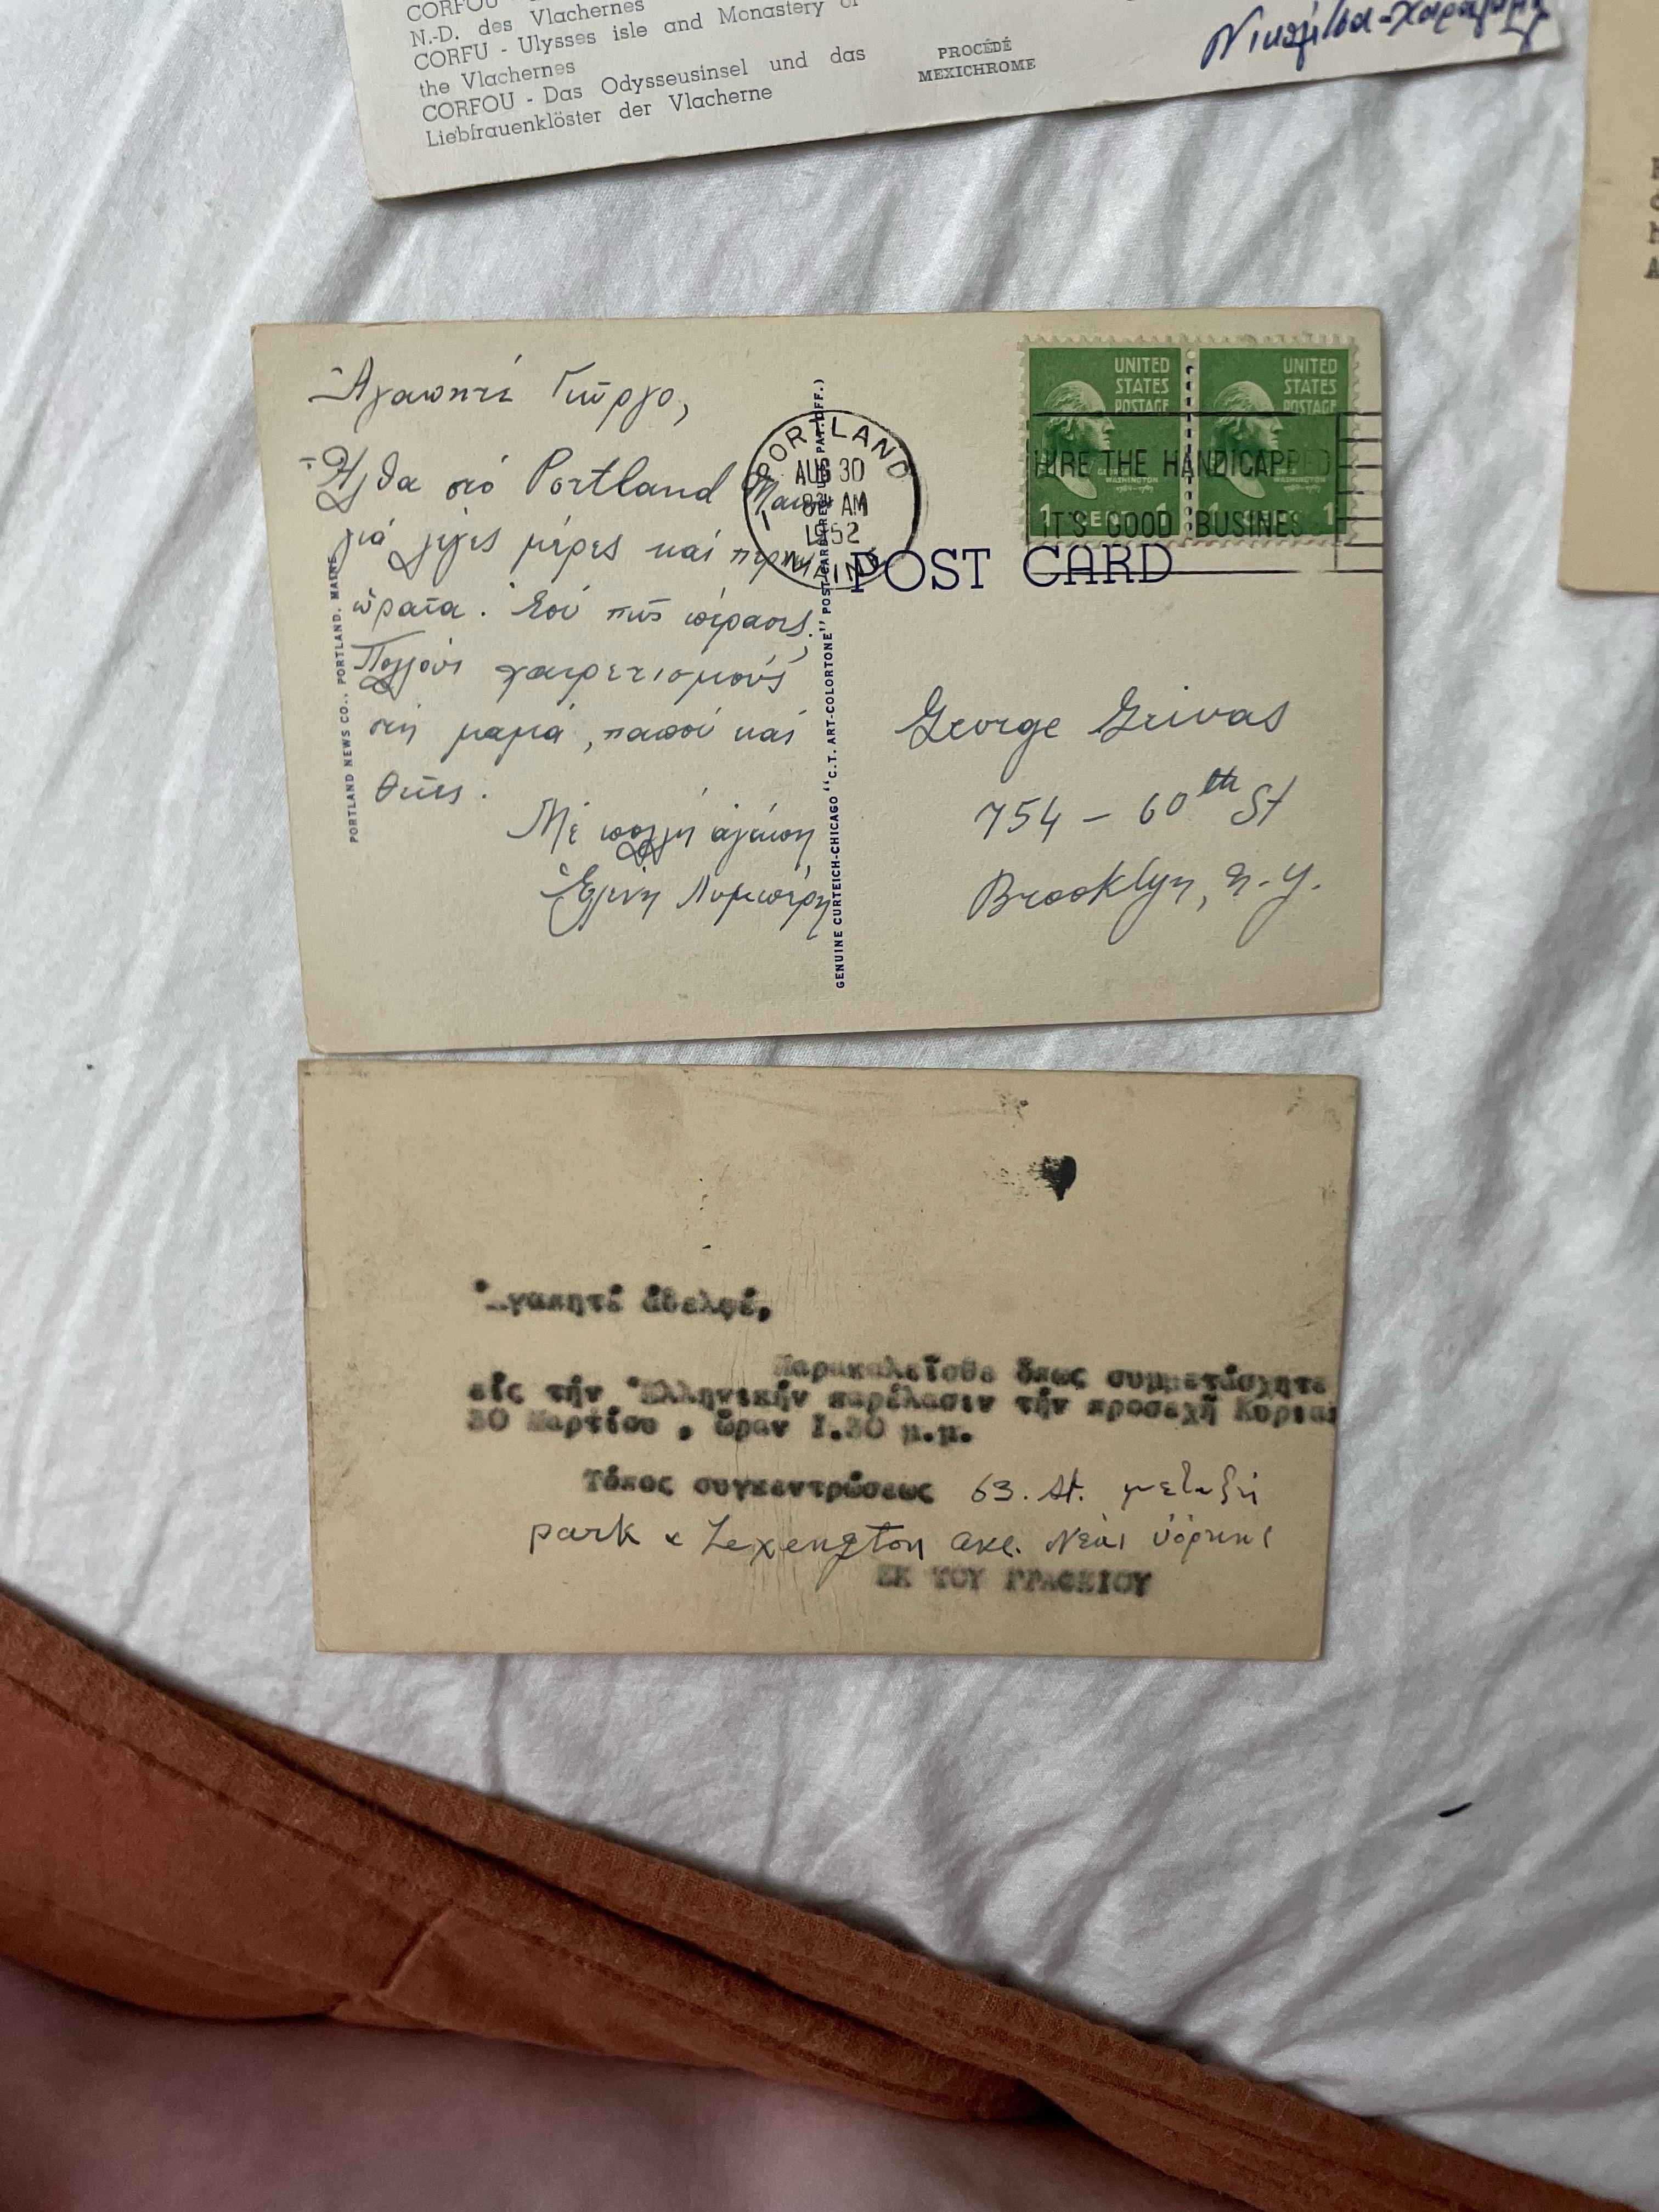 CORFOU
N.-D. des Vlachernes
CORFU - Ulysses isle and Monastery of
the Vlachernes
CORFOU - Das Odysseusinsel und das
Liebfrauenklöster der Vlacherne
PROCÉDÉ
MEXICHROME
Ἀγαπητέ Γιῶργο,
Ἦλθα στό Portland Maine
γιά λίγες μέρες καί περνῶ
ὡραῖα. Ἐσύ πῶς πέρασες;
Πολλούς χαιρετισμούς
στή μαμά, παπού καί
θεῖες.
Μέ πολλή ἀγάπη
Ἑλένη
PORTLAND NEWS CO., PORTLAND, MAINE
GENUINE CURTEICH-CHICAGO "C.T. ART-COLORTONE" POST CARD (REG. U.S. PAT. OFF.)
PORTLAND
AUG 30
AM
1952
MAINE
UNITED STATES POSTAGE
UNITED STATES POSTAGE
WASHINGTON
WASHINGTON
1 CENT 1
1 CENT 1
HIRE THE HANDICAPPED
IT'S GOOD BUSINESS
POST CARD
George Grivas
754 – 60th St
Brooklyn, N.Y.
Ἀγαπητέ ἀδελφέ,
Παρακαλεῖσθε ὅπως συμμετάσχητε
εἰς τήν Ἑλληνικήν παρέλασιν τήν προσεχῆ Κυριακ
30 Μαρτίου , ὥραν 1.30 μ.μ.
Τόπος συγκεντρώσεως 63. St. μεταξύ
park & Lexengton ave. Νέας Ὑόρκης
ΕΚ ΤΟΥ ΓΡΑΦΕΙΟΥ